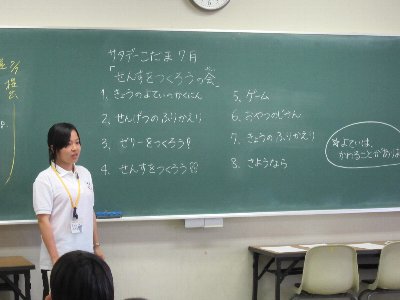 サタデーこだま7月
「せんすをつくろうの会」
1. きょうのよていのかくにん
2. せんげつのふりかえり
3. ゼリーをつくろう!
4. せんすをつくろう!!
5. ゲーム
6. おやつのじかん
7. きょうのふりかえり
8. さようなら
☆よていは、
かわることがありま